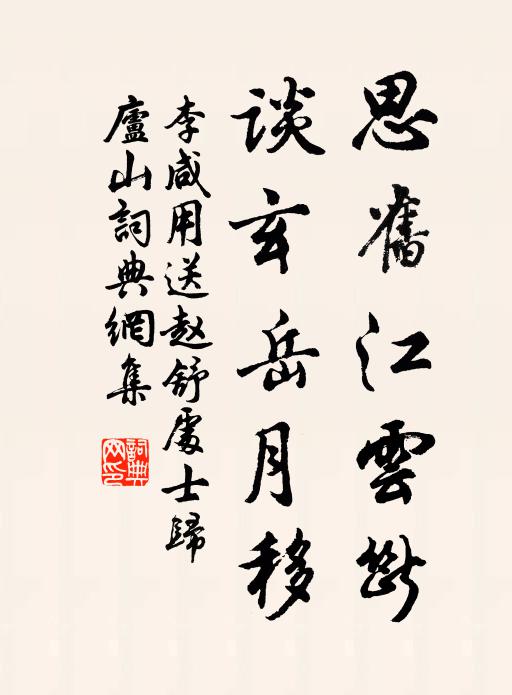 思舊江雲斷
談玄岳月移
李咸用送赵舒處士歸
廬山詞典網集
詞典网印